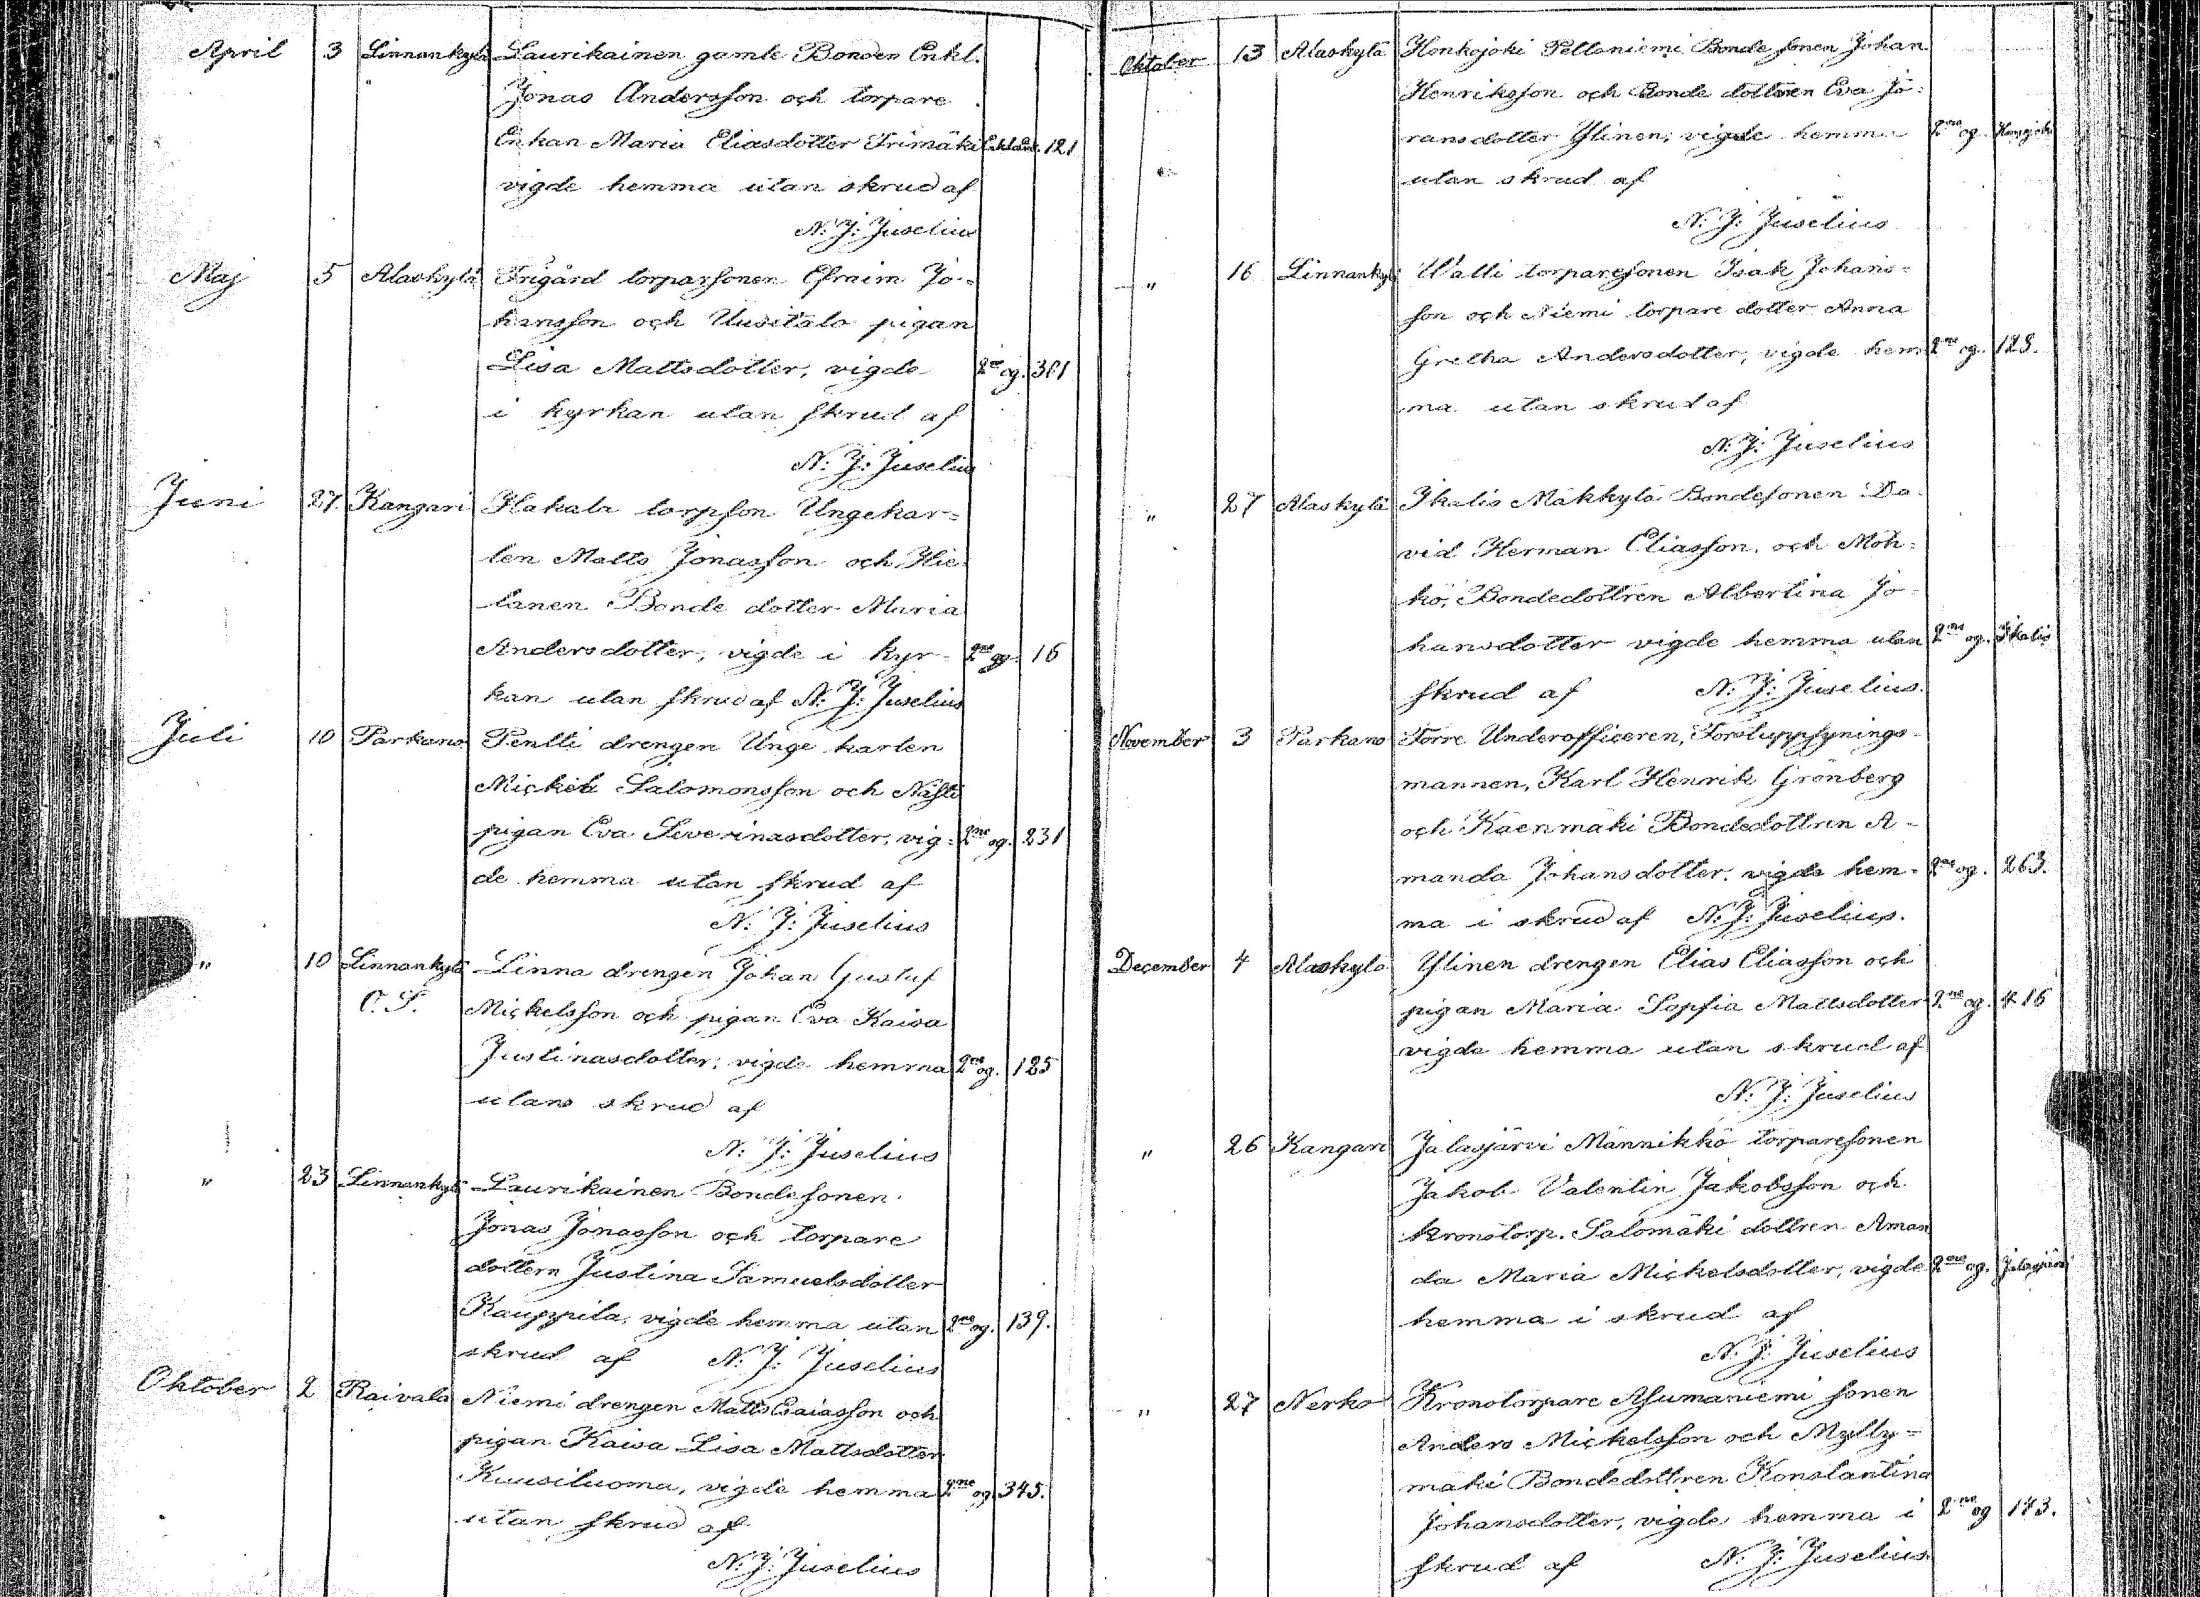 April 3 Linnankylä Laurikainen gamle Bonden Enkl.
Jonas Andersson och torpare
Enkan Maria Eliasdotter Trimäki 121
vigde hemma utan skrud af
N: J: Juselius
Maj 5 Alaskylä Frigård torparsonen Efraim Jo=
hansson och Uusitalo pigan
Lisa Mattsdotter, vigde 2ne og. 301
i kyrkan utan skrud af
N: J: Juselius
Juni 27. Kangari Hakala torpson Ungekar=
len Matts Jonasson och Hie
tanen Bonde dotter Maria
Andersdotter, vigde i kyr- 2ne og. 16
kan utan skrud af N: J: Juselius
Juli 10 Parkano Pentti drengen Unge karlen
Mickel Salomonsson och Näsli
pigan Eva Severinasdotter, vig= 2ne og. 231
de hemma utan skrud af
N: J: Juselius
" 10 Linnankylä Linna drengen Johan Gustaf
O. S. Mickelsson och pigan Eva Kaisa
Justinasdotter, vigde hemma 2ne og. 125
utan skrud af
N: J: Juselius
" 23 Linnankylä Laurikainen Bondesonen
Jonas Jonasson och torpare
dottern Justina Samuelsdotter
Kauppila, vigde hemma utan 2ne og. 139.
skrud af N: J: Juselius
Oktober 2 Raivala Niemi drengen Matts Esaiasson och
pigan Kaisa Lisa Mattsdotter
Kuusiluoma, vigde hemma 2ne og 345.
utan skrud af
N: J: Juselius
Oktober 13 Alaskylä Honkojoki Peltoniemi Bonde sonen Johan
Henriksson och Bonde dottren Eva Jö=
ransdotter Ylinen, vigde hemma 2ne og.
utan skrud af
N: J: Juselius
" 16 Linnankylä Walli torparesonen Isak Johans=
son och Niemi torpare dotter Anna
Gretha Andersdotter, vigde hem 2ne og. 128.
ma utan skrud af
N: J: Juselius
" 27 Alaskylä Ikalis Mäkkylä Bondesonen Da=
vid Herman Eliasson och Möh=
kö, Bondedottren Albertina Jo=
hansdotter vigde hemma utan 2ne og. Ikalis
skrud af N: J: Juselius.
November 3 Parkano Förre Underofficeren, Forstuppsynings=
mannen, Karl Henrik Grönberg
och Käenmäki Bondedottren A=
manda Johansdotter, vigde hem= 2ne og. 263.
ma i skrud af N: J: Juselius.
December 4 Alaskylä Ylinen drengen Elias Eliasson och
pigan Maria Sopfia Mattsdotter 2ne og. 416
vigde hemma utan skrud af
N: J: Juselius
" 26 Kangari Jalasjärvi Männikkö torparesonen
Jakob Valentin Jakobsson och
kronotorp. Salomäki dottren Aman
da Maria Mickelsdotter, vigde 2ne og. Jalasjärvi
hemma i skrud af
N: J: Juselius
" 27 Nerko Kronotorpare Asumaniemi sonen
Anders Mickelsson och Mylly=
mäki Bondedottren Konstantina
Johansdotter, vigde hemma i 2ne og 173.
skrud af N: J: Juselius